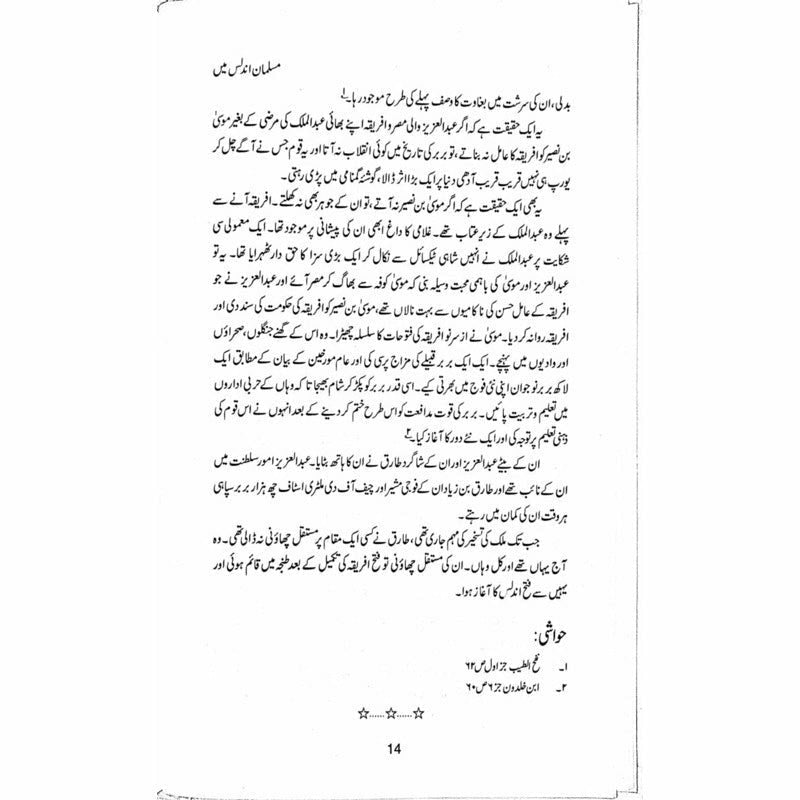 مسلمان اندلس میں
بدلی، ان کی سرشت میں بغاوت کا وصف پہلے کی طرح موجود رہا۔۱
یہ ایک حقیقت ہے کہ اگر عبدالعزیز والی مصر و افریقہ اپنے بھائی عبدالملک کی مرضی کے بغیر موسیٰ
بن نصیر کو افریقہ کا عامل نہ بناتے، تو بربر کی تاریخ میں کوئی انقلاب نہ آتا اور یہ قوم جس نے آگے چل کر
یورپ ہی نہیں قریب قریب آدھی دنیا پر ایک بڑا اثر ڈالا، گوشۂ گمنامی میں پڑی رہتی۔
یہ بھی ایک حقیقت ہے کہ اگر موسیٰ بن نصیر نہ آتے، تو ان کے جوہر بھی نہ کھلتے۔ افریقہ آنے سے
پہلے وہ عبدالملک کے زیر عتاب تھے۔ غلامی کا داغ ابھی ان کی پیشانی پر موجود تھا۔ ایک معمولی سی
شکایت پر عبدالملک نے انہیں شاہی ٹیکسال سے نکال کر ایک بڑی سزا کا حق دار ٹھہرایا تھا۔ یہ تو
عبدالعزیز اور موسیٰ کی باہمی محبت وسیلہ بنی کہ موسیٰ کوفہ سے بھاگ کر مصر آئے اور عبدالعزیز نے جو
افریقہ کے عامل حسن کی ناکامیوں سے بہت نالاں تھے، موسیٰ بن نصیر کو افریقہ کی حکومت کی سند دی اور
افریقہ روانہ کر دیا۔ موسیٰ نے از سر نو افریقہ کی فتوحات کا سلسلہ چھیڑا۔ وہ اس کے گھنے جنگلوں، صحراؤں
اور وادیوں میں پہنچے۔ ایک ایک بربر قبیلے کی مزاج پرسی کی اور عام مورخین کے بیان کے مطابق ایک
لاکھ بربر نوجوان اپنی نئی فوج میں بھرتی کیے۔ اسی قدر بربر کو پکڑ کر شام بھیجا تا کہ وہاں کے حربی اداروں
میں تعلیم و تربیت پائیں۔ بربر کی قوت مدافعت کو اس طرح ختم کر دینے کے بعد انہوں نے اس قوم کی
ذہنی تعلیم پر توجہ کی اور ایک نئے دور کا آغاز کیا۔۲
ان کے بیٹے عبدالعزیز اور ان کے شاگرد طارق نے ان کا ہاتھ بٹایا۔ عبدالعزیز امور سلطنت میں
ان کے نائب تھے اور طارق بن زیاد ان کے فوجی مشیر اور چیف آف دی ملٹری اسٹاف چھ ہزار بربر سپاہی
ہر وقت ان کی کمان میں رہتے۔
جب تک ملک کی تسخیر کی مہم جاری تھی، طارق نے کسی ایک مقام پر مستقل چھاؤنی نہ ڈالی تھی۔ وہ
آج یہاں تھے اور کل وہاں۔ ان کی مستقل چھاؤنی تو فتح افریقہ کی تکمیل کے بعد طنجہ میں قائم ہوئی اور
یہیں سے فتح اندلس کا آغاز ہوا۔
حواشی:
۱۔ نفح الطیب جز اول ص ۶۲
۲۔ ابن خلدون جز ۶ ص ۶۰
☆......☆......☆
14